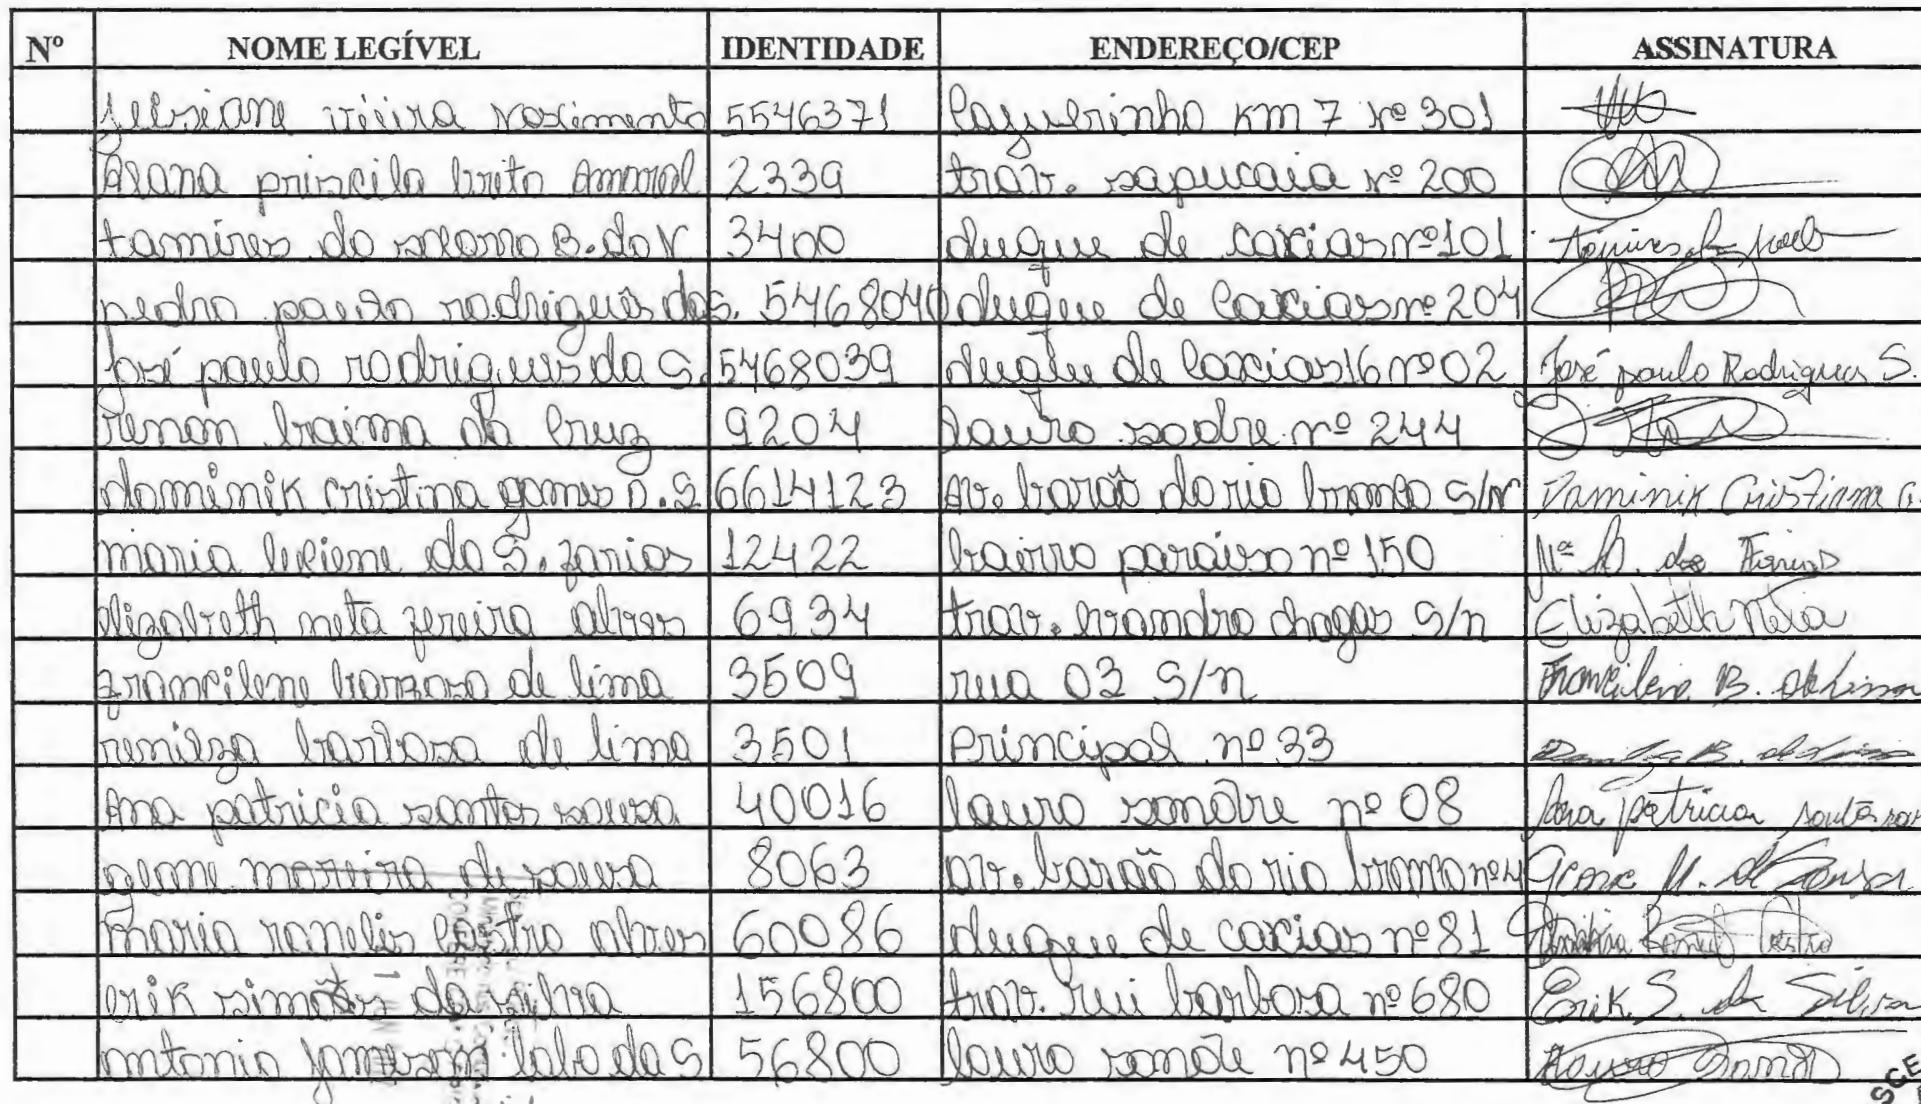 Nº NOME LEGÍVEL IDENTIDADE ENDEREÇO/CEP ASSINATURA
vieira nascimento 5546371 km 7 nº 301
priscila brito Amaral 2339 trav. sapucaia nº 200
tamires do socorro B. do N 3400 duque de caxias nº 101
pedro paulo rodrigues das. 5468040 duque de Caxias nº 204
José paulo rodrigues da S. 5468039 duque de Caxias 16 nº 02 José paulo Rodrigues S.
renan braima da Cruz 9204 lauro sodre nº 244
dominik cristina gomes D. S 6614123 av. barão do rio branco S/N Dominik Cristina G.
maria luciene da S. farias 12422 bairro paraíso nº 150 Mª
elizabeth neta fereira alves 6934 trav. evandro chagas S/n Elizabeth Neta
francilene barbosa de lima 3509 rua 03 S/n Francilene B. de Lima
renilza barbosa de lima 3501 Principal nº 33
Ana patricia santos souza 40016 lauro nº 08 Ana patricia
geane moreira de souza 8063 av. barão do rio branco nº 4 Geane M. de Sousa
Maria ranelis Castro alves 60086 duque de caxias nº 81
erik simões da silva 156800 trav. rui barbosa nº 680 Erik S. da Silva
antonio jameson lobo da S 56800 lauro nº 450